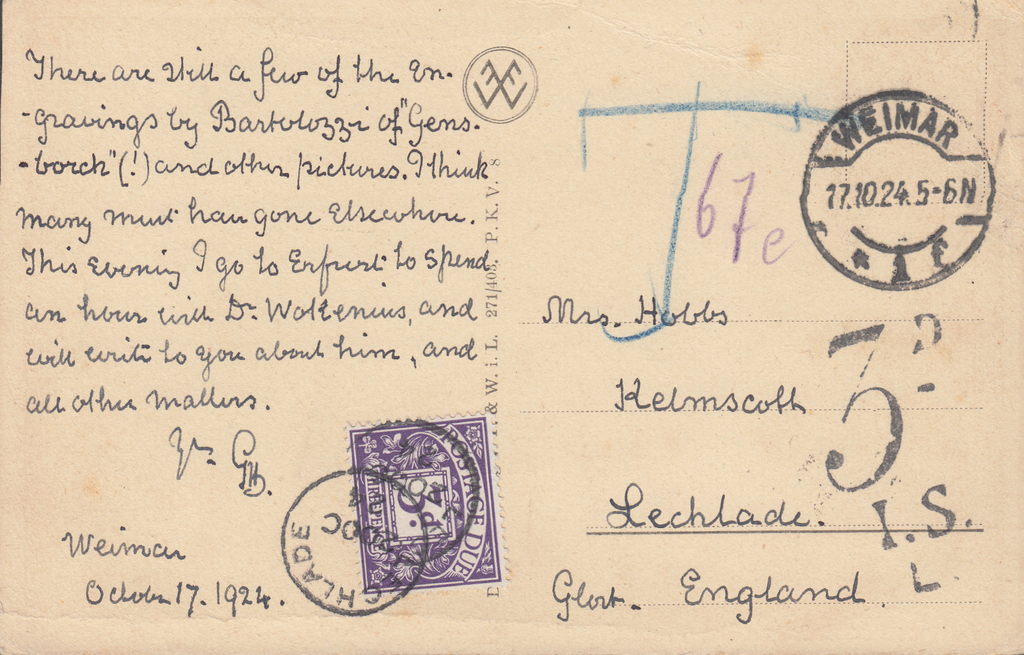 There are still a few of the En-
-gravings by Bartolozzi of "Gens-
-borch" (!) and other pictures. I think
many must have gone Elsewhere.
This Evening I go to Erfurt to spend
an hour with Dr. Wokenius, and
will write to you about him, and
all other matters.
Yrs. GH.
Weimar
October 17. 1924.
271/408. P. K. V. 8
& W. i. L.
POSTAGE DUE
3D.
THREE PENCE
CHLADE
OC
24
T
67c
WEIMAR
17.10.24.5-6N
* 1 f
3D
I.S.
L.
Mrs. Hobbs
Kelmscott
Lechlade.
Glost. England.